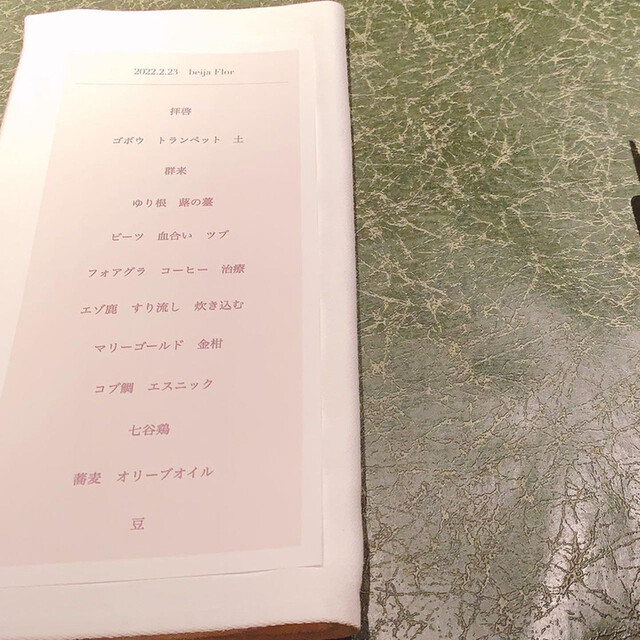 2022.2.23 beija Flor
拝啓
ゴボウ トランペット 土
群来
ゆり根 蕗の薹
ビーツ 血合い ツブ
フォアグラ コーヒー 治療
エゾ鹿 すり流し 炊き込む
マリーゴールド 金柑
コブ鯛 エスニック
七谷鶏
蕎麦 オリーブオイル
豆